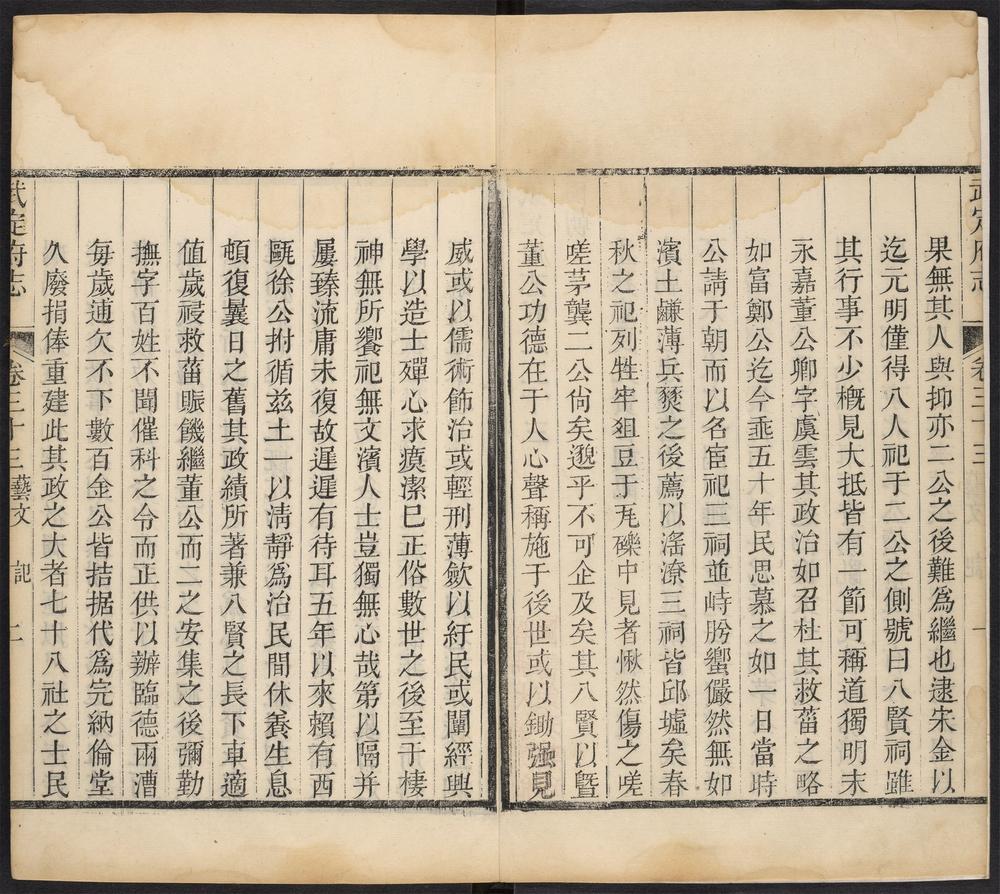 武定府志
卷三十三
一
果無其人與抑亦二公之後難爲繼也逮宋金以
迄元明僅得八人祀于二公之側號曰八賢祠雖
其行事不少槪見大抵皆有一節可稱道獨明末
永嘉董公卿字虞雲其政治如召杜其救菑之略
如富鄭公迄今垂五十年民思慕之如一日當時
公請于朝而以名宦祀三祠並峙肹蠁儼然無如
濱土鹻薄兵燹之後薦以滛潦三祠皆邱墟矣春
秋之祀列牲牢俎豆于瓦礫中見者愀然傷之嗟
嗟茅龔二公尙矣邈乎不可企及矣其八賢以曁
董公功德在于人心聲稱施于後世或以鋤强見
威或以儒術飾治或輕刑薄歛以紓民或闡經興
學以造士殫心求瘼潔巳正俗數世之後至于棲
神無所饗祀無文濱人士豈獨無心哉第以隔并
屢臻流庸未復故遲遲有待耳五年以來賴有西
甌徐公拊循兹土一以淸靜爲治民間休養生息
頓復曩日之舊其政績所著兼八賢之長下車適
值歲祲救菑賑饑繼董公而二之安集之後彌勤
撫字百姓不聞催科之令而正供以辦臨德兩漕
每歲逋欠不下數百金公皆拮据代爲完納倫堂
久廢捐俸重建此其政之大者七十八社之士民
武定府志
卷三十三藝文
記
二